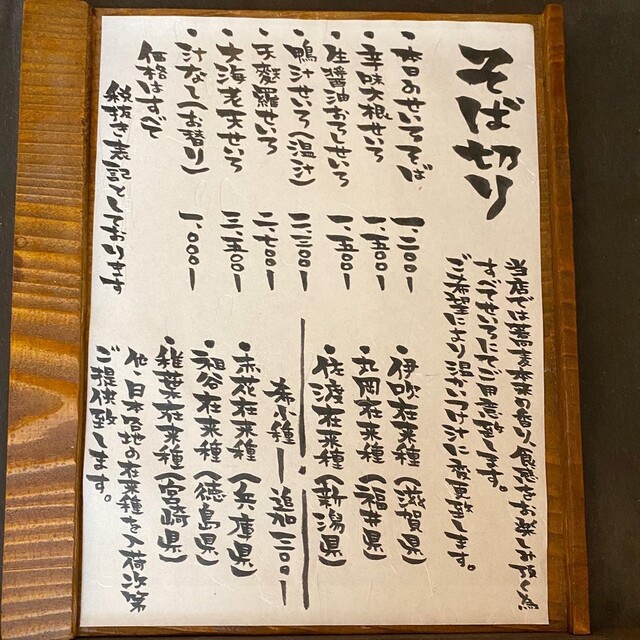 そば切り
当店では蕎麦本来の香り、食感をお楽しみ頂く為
すべてせいろにてご用意致します。
ご希望により温かいつけ汁に変更致します。
・本日のせいろそば 一、二〇〇一
・辛味大根せいろ 一、五〇〇一
・生醤油おろしせいろ 一、五〇〇一
・鴨汁せいろ(温汁) 二、二〇〇一
・天麩羅せいろ 二、七〇〇一
・大海老天せいろ 三、五〇〇一
・汁なし(お替り) 一、〇〇〇一
価格はすべて
税抜き表記としております
・伊吹在来種(滋賀県)
・丸岡在来種(福井県)
・佐渡在来種(新潟県)
希少種ー追加二〇〇一
・赤花在来種(兵庫県)
・祖谷在来種(徳島県)
・椎葉在来種(宮崎県)
他、日本各地の在来種を入荷次第
ご提供致します。